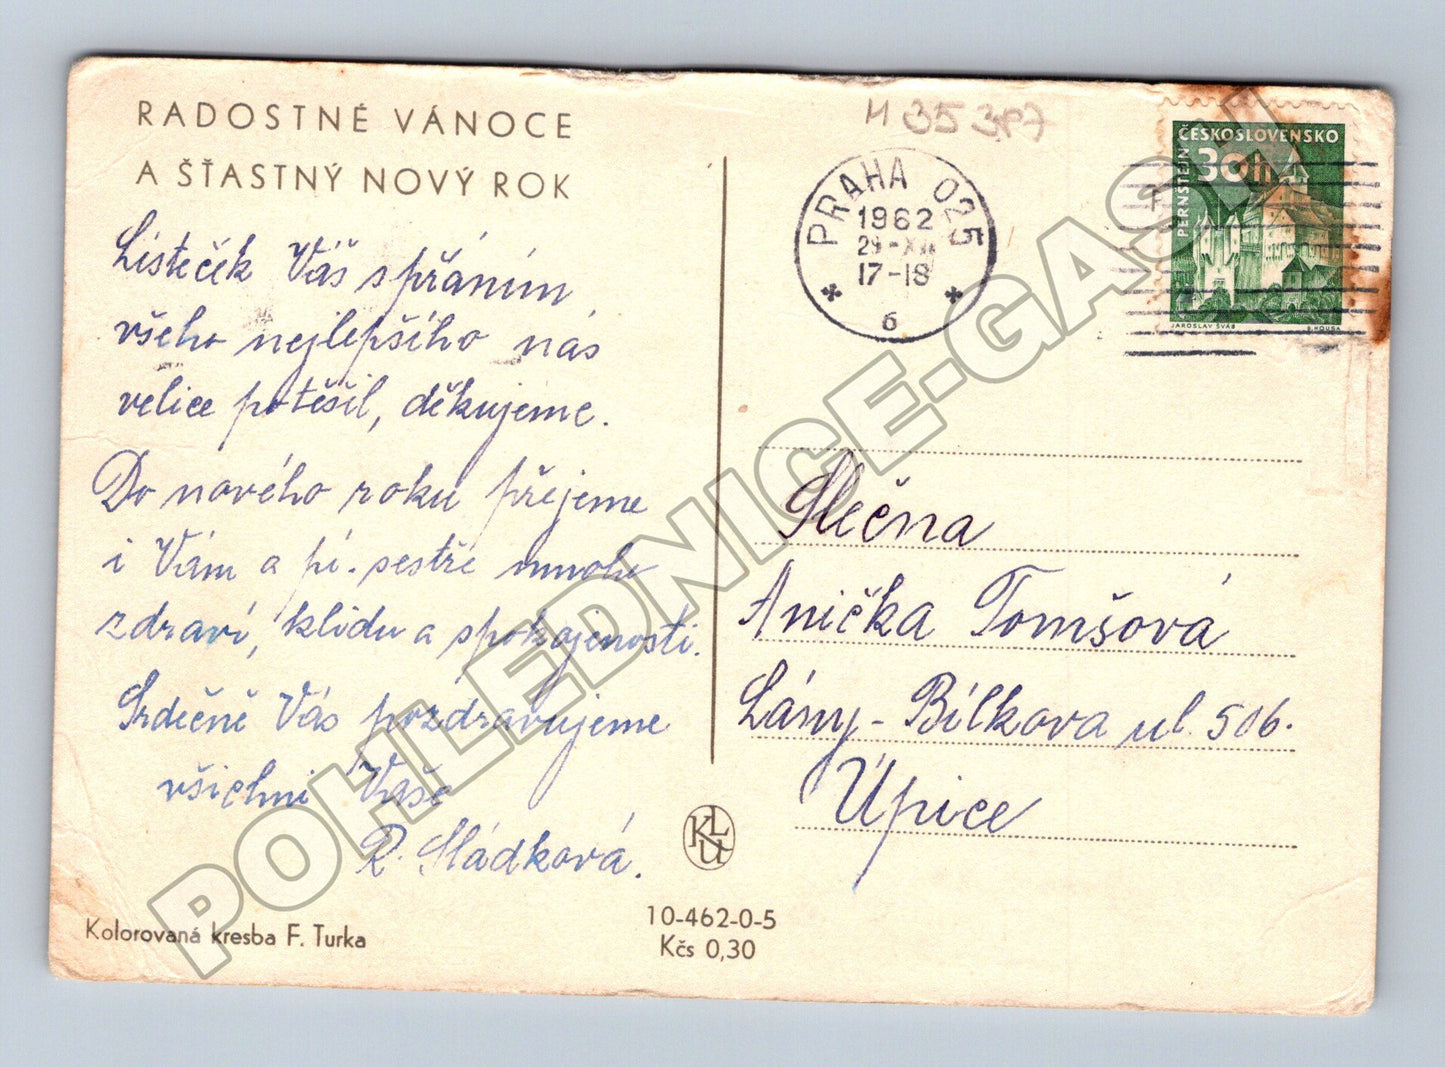 RADOSTNÉ VÁNOCE
A ŠŤASTNÝ NOVÝ ROK
Lísteček Váš s přáním
všeho nejlepšího nás
velice potěšil, děkujeme.
Do nového roku přejeme
i Vám a pí. sestře mnoho
zdraví, klidu a spokojenosti.
Srdečně Vás pozdravujeme
všichni Vaše
R. Sládková.
Kolorovaná kresba F. Turka
KLU
10-462-0-5
Kčs 0,30
M 35 3P7
PRAHA 025
1962
29-XII
17-18
6
ČESKOSLOVENSKO
30h
PERNŠTEJN
JAROSLAV ŠVÁB
Slečna
Anička Tomšová
Lány - Bílkova ul. 506.
Úpice
POHLEDNICE-GASTI